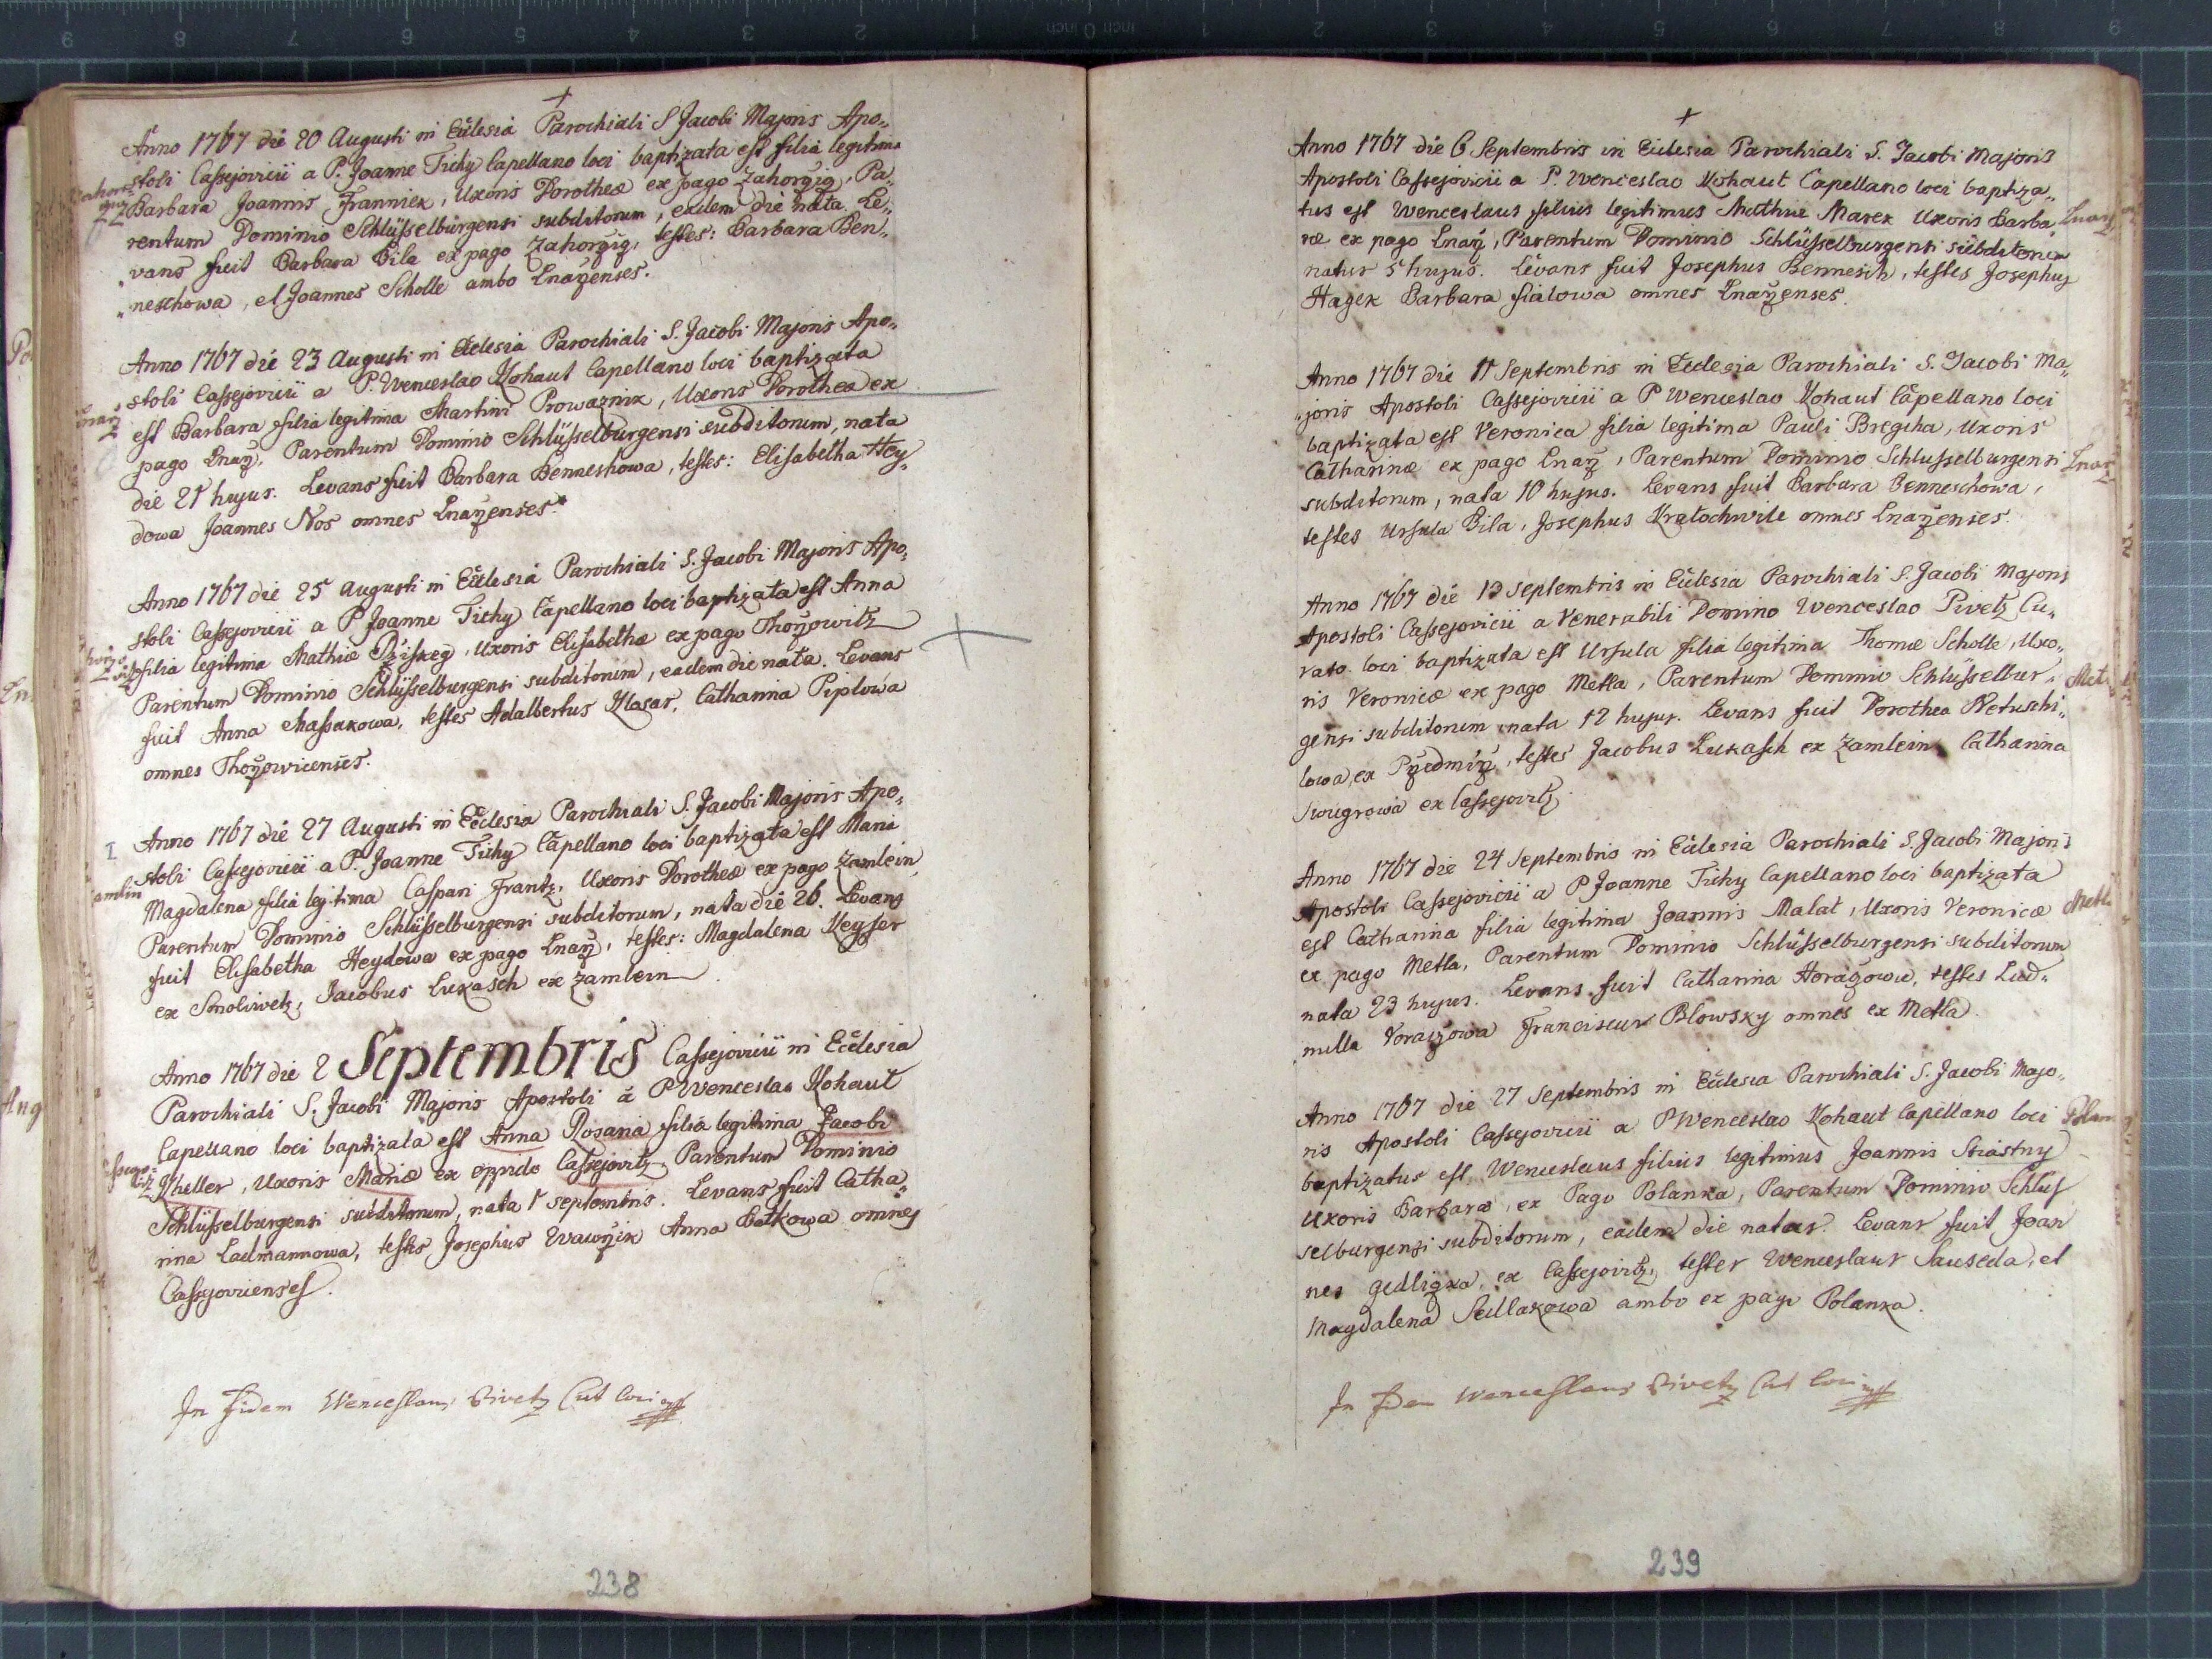 +
Anno 1767 die 20 Augusti in Ecclesia Parochiali S Jacobi Majoris Apo„
stoli Cassejovicii a P. Joanne Tichy Capellano loci baptizata est filia legitima
Barbara Joannis Franniek, Uxoris Dorotheæ ex pago Zahorzig, Pa„
rentum Dominio Schlüsselburgensi subditorum, eadem die nata. Le„
„vans fuit Barbara Bila ex pago Zahorzig, testes: Barbara Ben„
„neschowa, et Joannes Scholle ambo Lnarzenses.
Anno 1767 die 23 Augusti in Ecclesia Parochiali S. Jacobi Majoris Apo„
stoli Cassejovicii a P. Wenceslao Kohaut Capellano loci baptizata
est Barbara filia legitima Martini Prowaznik, Uxoris Dorothea ex
pago Lnarz, Parentum Dominio Schlüsselburgensi subditorum, nata
die 21 hujus. Levans fuit Barbara Benneshowa, testes: Elisabetha Hey„
dowa Joannes Nos omnes Lnarzenses.
Anno 1767 die 25 Augusti in Ecclesia Parochiali S. Jacobi Majoris Apo„
stoli Cassejovicii a P Joanne Tichy Capellano loci baptizata est Anna
filia legitima Mathiæ Dziskeg, Uxoris Elisabethæ ex pago Thorzowitz
Parentum Dominio Schlüsselburgensi subditorum, eadem die nata. Levans
fuit Anna Massakowa, testes Adalbertus Klasar, Catharina Piplowa
omnes Thorzowicenses.
I
Anno 1767 die 27 Augusti in Ecclesia Parochiali S. Jacobi Majoris Apo„
stoli Cassejovicii a P. Joanne Tichy Capellano loci baptizata est Maria
Magdalena filia legitima Caspari Frantz, Uxoris Dorotheæ ex pago Zamlein,
Parentum Dominio Schlüsselburgensi subditorum, nata die 26. Levans
fuit Elisabetha Heydowa ex pago Lnarz, testes: Magdalena Keyser
ex Smoliwetz, Jacobus Lukasch ex Zamlein
Anno 1767 die 2 Septembris Cassejovicii in Ecclesia
Parochiali S. Jacobi Majoris Apostoli á P Wenceslao Kohaut
Capellano loci baptizata est Anna Rosaria filia legitima Jacobi
Kheller, Uxoris Mariæ ex oppido Cassejovitz Parentum Dominio
Schlüsselburgensi subditorum, nata 1 Septembris. Levans fuit Catha„
rina Ladmannowa, testes Josephus Wawrzik Anna Batkowa omnes
Cassejovienses.
In Fidem Wenceslaus Pivetz Cut loci
238
+
Anno 1767 die 6 Septembris in Ecclesia Parochiali S. Jacobi Majoris
Apostoli Cassejovicii a P. Wenceslao Kohaut Capellano loci baptiza„
tus est Wenceslaus filius legitimus Mathiæ Marek Uxoris Barba„
ræ ex pago Lnarz, Parentum Dominio Schlüsselburgensi subditorum
natus 5 hujus. Levans fuit Josephus Bennesch, testes Josephus
Hagek Barbara Fialowa omnes Lnarzenses.
Anno 1767 die 11 Septembris in Ecclesia Parochiali S. Jacobi Ma„
„joris Apostoli Cassejovicii a P Wenceslao Kohaut Capellano loci
baptizata est Veronica filia legitima Pauli Bregiha, Uxoris
Catharinæ ex pago Lnarz, Parentum Dominio Schlusselburgensi
subditorum, nata 10 hujus. Levans fuit Barbara Benneschowa,
testes Ursula Bila, Josephus Kratochwile omnes Lnarzenses.
Anno 1767 die 13 Septembris in Ecclesia Parochiali S. Jacobi Majoris
Apostoli Cassejovicii a Venerabili Domino Wenceslao Pivetz Cu„
rato loci baptizata est Ursula filia legitima Thomæ Scholle, Uxo„
ris Veronicæ ex pago Metla, Parentum Dominio Schlüsselbur„
gensi subditorum nata 12 hujus. Levans fuit Dorothea Netuschi„
lowa, ex Przedmirz, testes Jacobus Lukasch ex Zamlein Catharina
Swugrowa ex Cassejovitz.
Anno 1767 die 24 Septembris in Ecclesia Parochiali S. Jacobi Majoris
Apostoli Cassejovicii a P Joanne Tichy Capellano loci baptizata
est Catharina filia legitima Joannis Malat, Uxoris Veronicæ
ex pago Metla, Parentum Dominio Schlüsselburgensi subditorum
nata 23 hujus. Levans fuit Catharina Horazowa, testes Lud„
milla Voraczowa Franciscus Blowsky omnes ex Metla.
Anno 1767 die 27 Septembris in Ecclesia Parochiali S. Jacobi Majo„
ris Apostoli Cassejovicii a P Wenceslao Kohaut Capellano loci
baptizatus est Wenceslaus filius legitimus Joannis Stiastny
Uxoris Barbaræ, ex Pago Polanka, Parentum Dominio Schlus
selburgensi subditorum, eadem die natus. Levans fuit Joan
nes Gedligka, ex Cassejovitz, testes Wenceslaus Sauseda, et
Magdalena Sedlakowa ambo ex pago Polanka.
In Fidem Wenceslaus Pivetz Cut loci
239